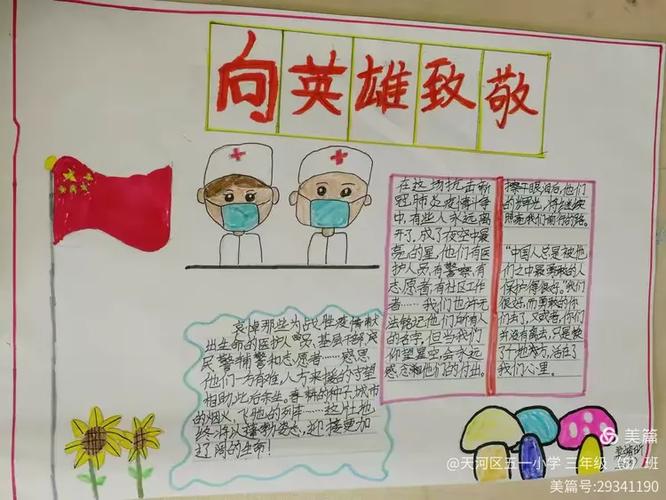 向英雄致敬
在这场抗击新
冠肺炎疫情斗争
中，有些人永远离
开了，成了夜空中最
亮的星，他们有医
护人员，有警察，有
志愿者，有社区工作
者……我们也许无
法铭记他们所有人
的名字，但当我们
仰望星空，会永远
感念和他们的付出。
擦干眼泪后，他们
的
照亮我们前行的路。
"中国人总是被他
们之中最勇敢的人
保护得很好。"我们
很好，而勇敢的你
们去了，又或者，你们
并没有离去，只是换
了个地方，活在了
我们心里。
哀悼那些为战胜疫情献
出生命的医护人员、基层干部、
民警辅警和志愿者……感恩
他们一方有难，八方来援的守望
相助，此后余生。春耕的种子、城市
的烟火、飞驰的列车……这片土地
终将以接勤姿态，迎接更加
辽阔的生命！
美篇
@天河区五一小学 三年级（6）班
美篇号:29341190